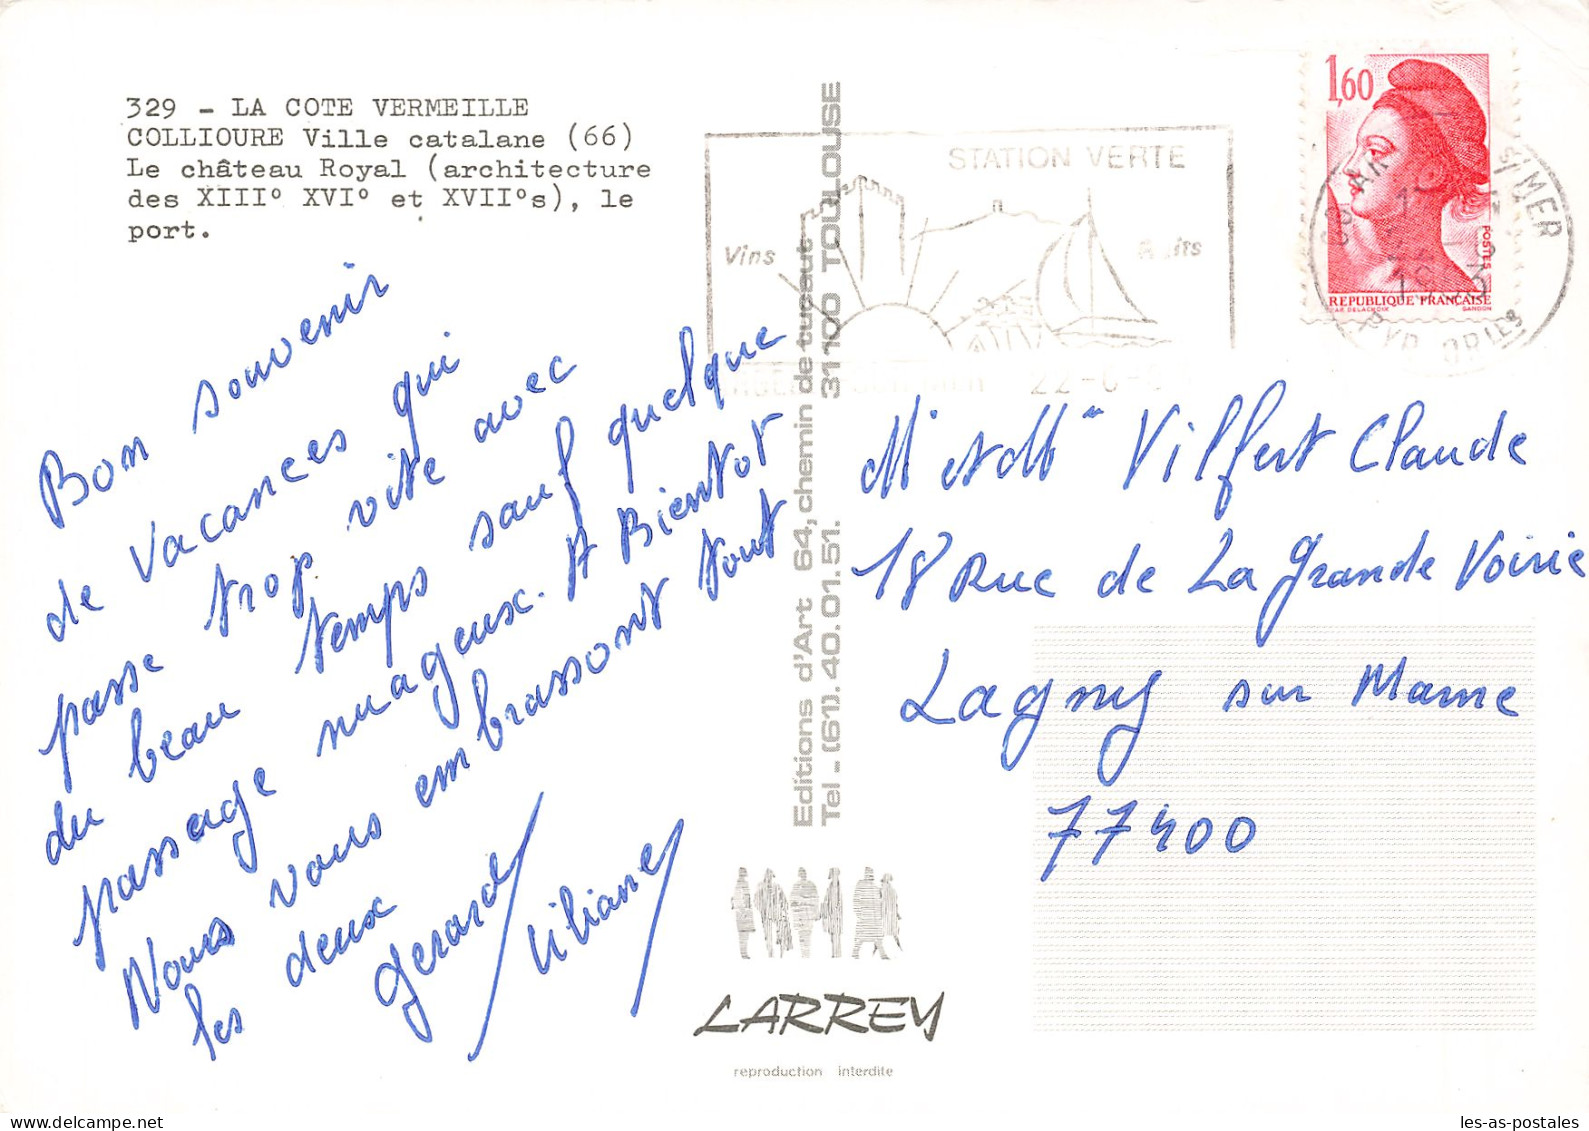 329 - LA COTE VERMEILLE
COLLIOURE Ville catalane (66)
Le château Royal (architecture
des XIII° XVI° et XVII°s), le
port.
Bon souvenir
de vacances qui
passe trop vite avec
du beau temps sauf quelque
passage nuageux. A Bientot
Nous vous embrassont tout
les deux
Gerard
Liliane
Editions d'Art 64, chemin de tucaut 31100 TOULOUSE
Tel - (61). 40. 01. 51.
LARREY
reproduction interdite
STATION VERTE
Vins
22-6-
1,60
POSTES
REPUBLIQUE FRANÇAISE
PAR DELACROIX GANDON
S/MER
M et Mme Vilfert Claude
18 Rue de La Grande Voirie
Lagny sur Marne
77400
les-as-postales